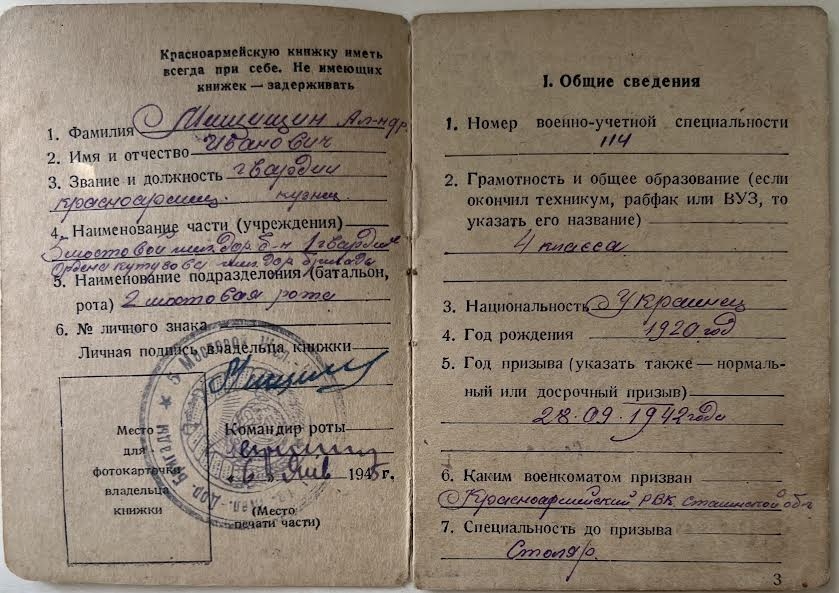 Красноармейскую книжку иметь
всегда при себе. Не имеющих
книжек — задерживать
1. Фамилия Мишицин Ал-ндр
2. Имя и отчество Иванович
3. Звание и должность гвардии
красноармеец. кузнец.
4. Наименование части (учреждения)
5 мостовой инж дор. б-н 1 гвардейс
Ордена кутузова инж дор. бригада
5. Наименование подразделения (батальон,
рота) 2 мостовая рота
6. № личного знака
Личная подпись владельца книжки
Место
для
фотокарточки
владельца
книжки
Командир роты
« 6 » Янв 1945 г.
(Место
печати части)
★ 5 Мостовой
Дор. Бригады ★
I. Общие сведения
1. Номер военно-учетной специальности
114
2. Грамотность и общее образование (если
окончил техникум, рабфак или ВУЗ, то
указать его название)
4 класса
3. Национальность Украинец
4. Год рождения 1920 год
5. Год призыва (указать также — нормаль-
ный или досрочный призыв)
28.09.1942 года
6. Каким военкоматом призван
Красноармейский РВК Сталинской обл
7. Специальность до призыва
Столяр.
3